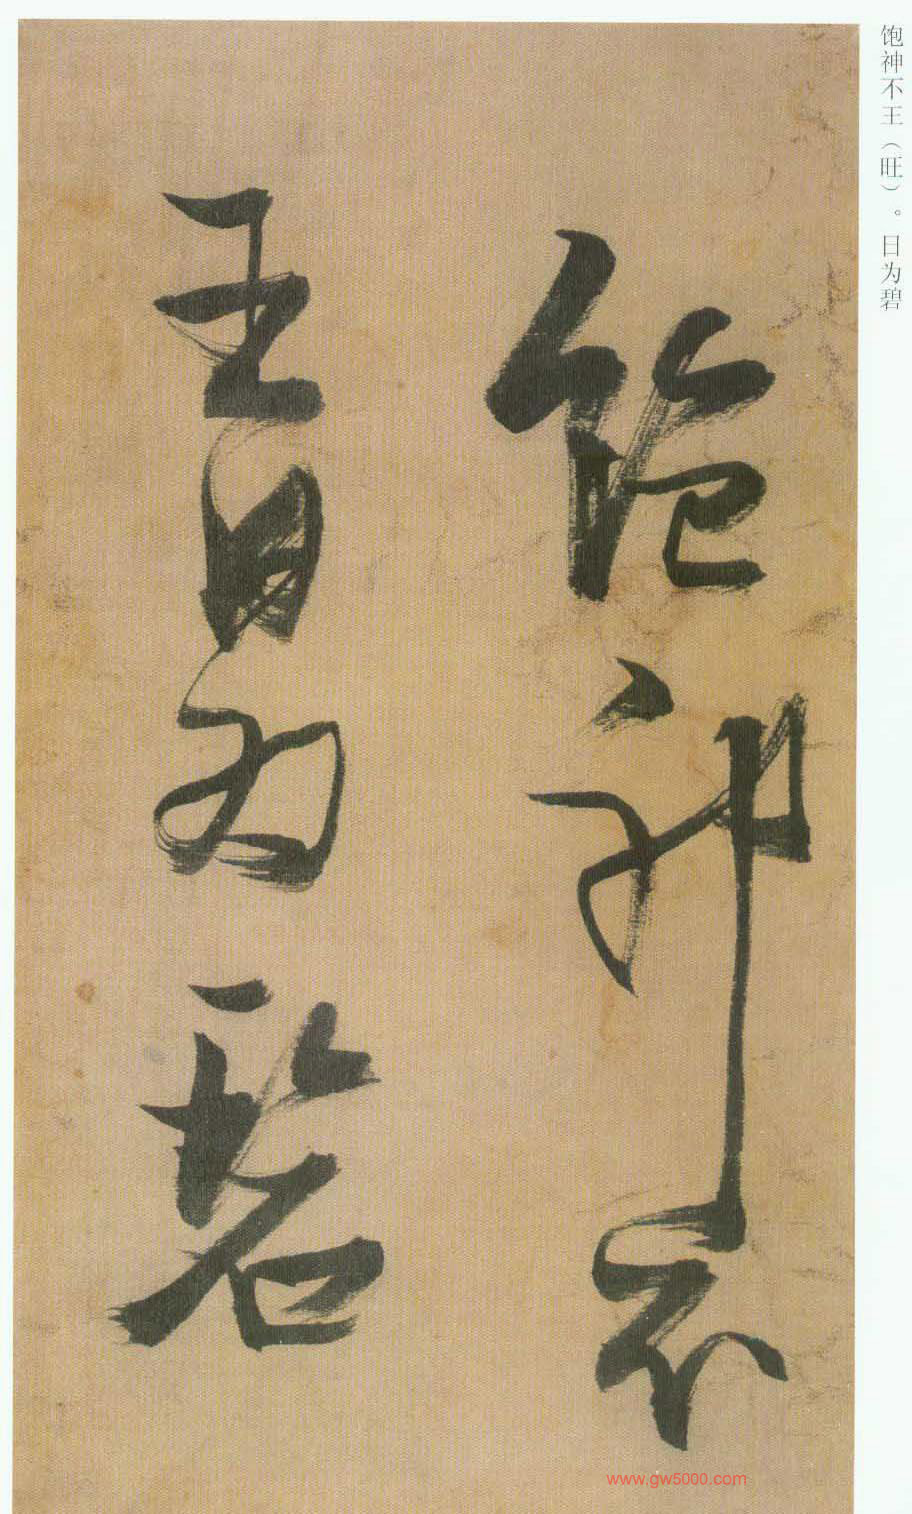 饱神不王（旺）。日为碧
飽神不
王日為碧
www.gw5000.com